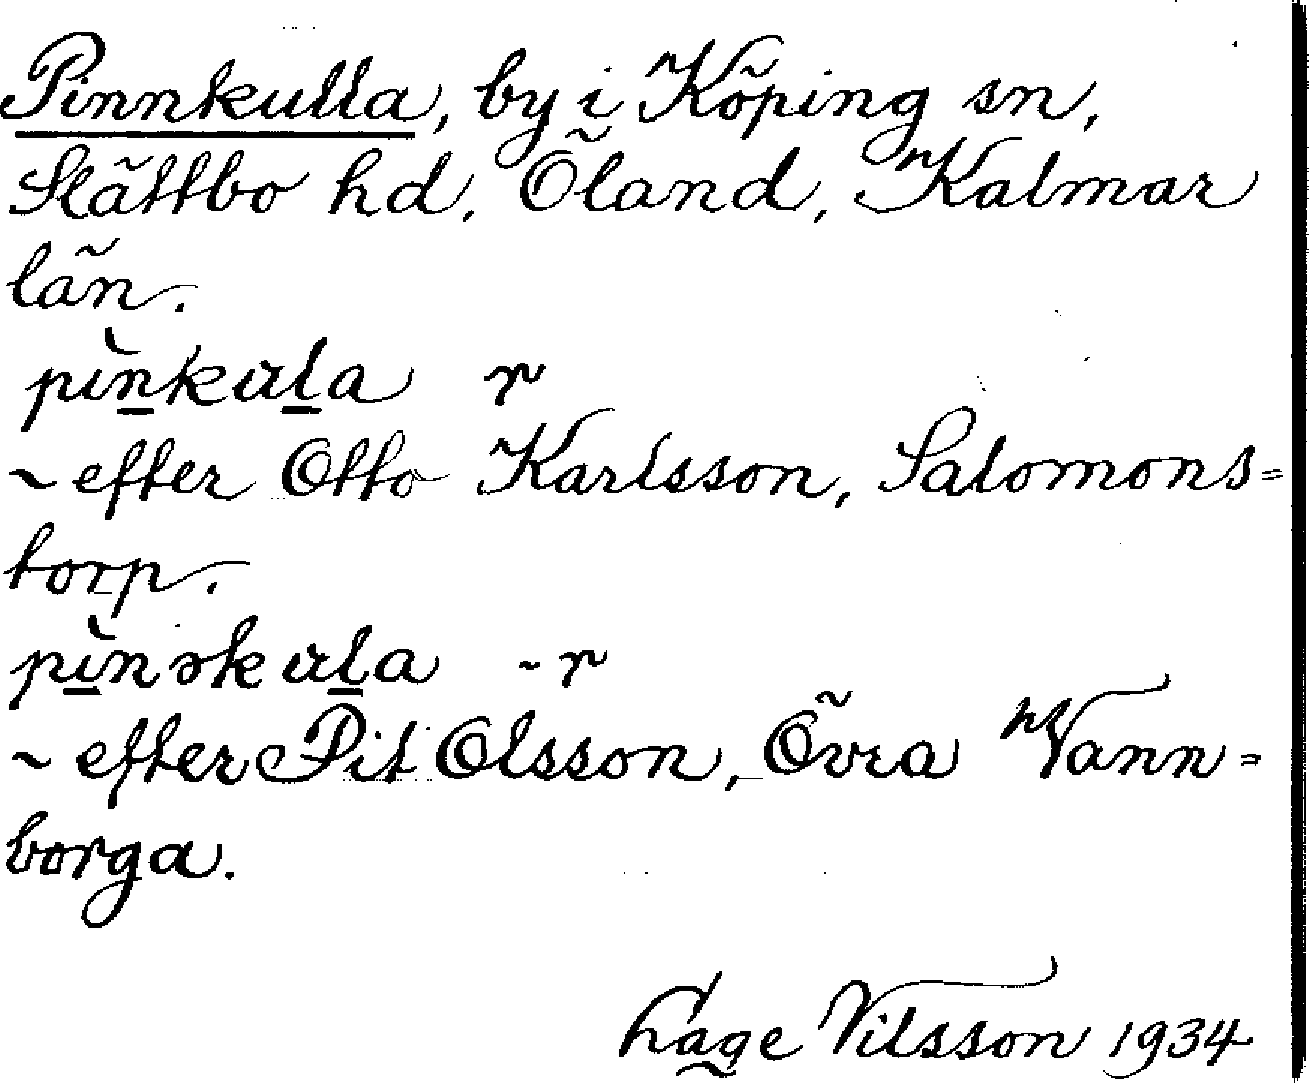 Pinnkulla, by i Köping sn,
Slättbo hd, Öland, Kalmar
län.
pìnkula r
~ efter Otto Karlsson, Salomons=
torp.
pìnəkula -r
~ efter Pit Olsson, Övra Vann=
borga.
Lage Nilsson 1934